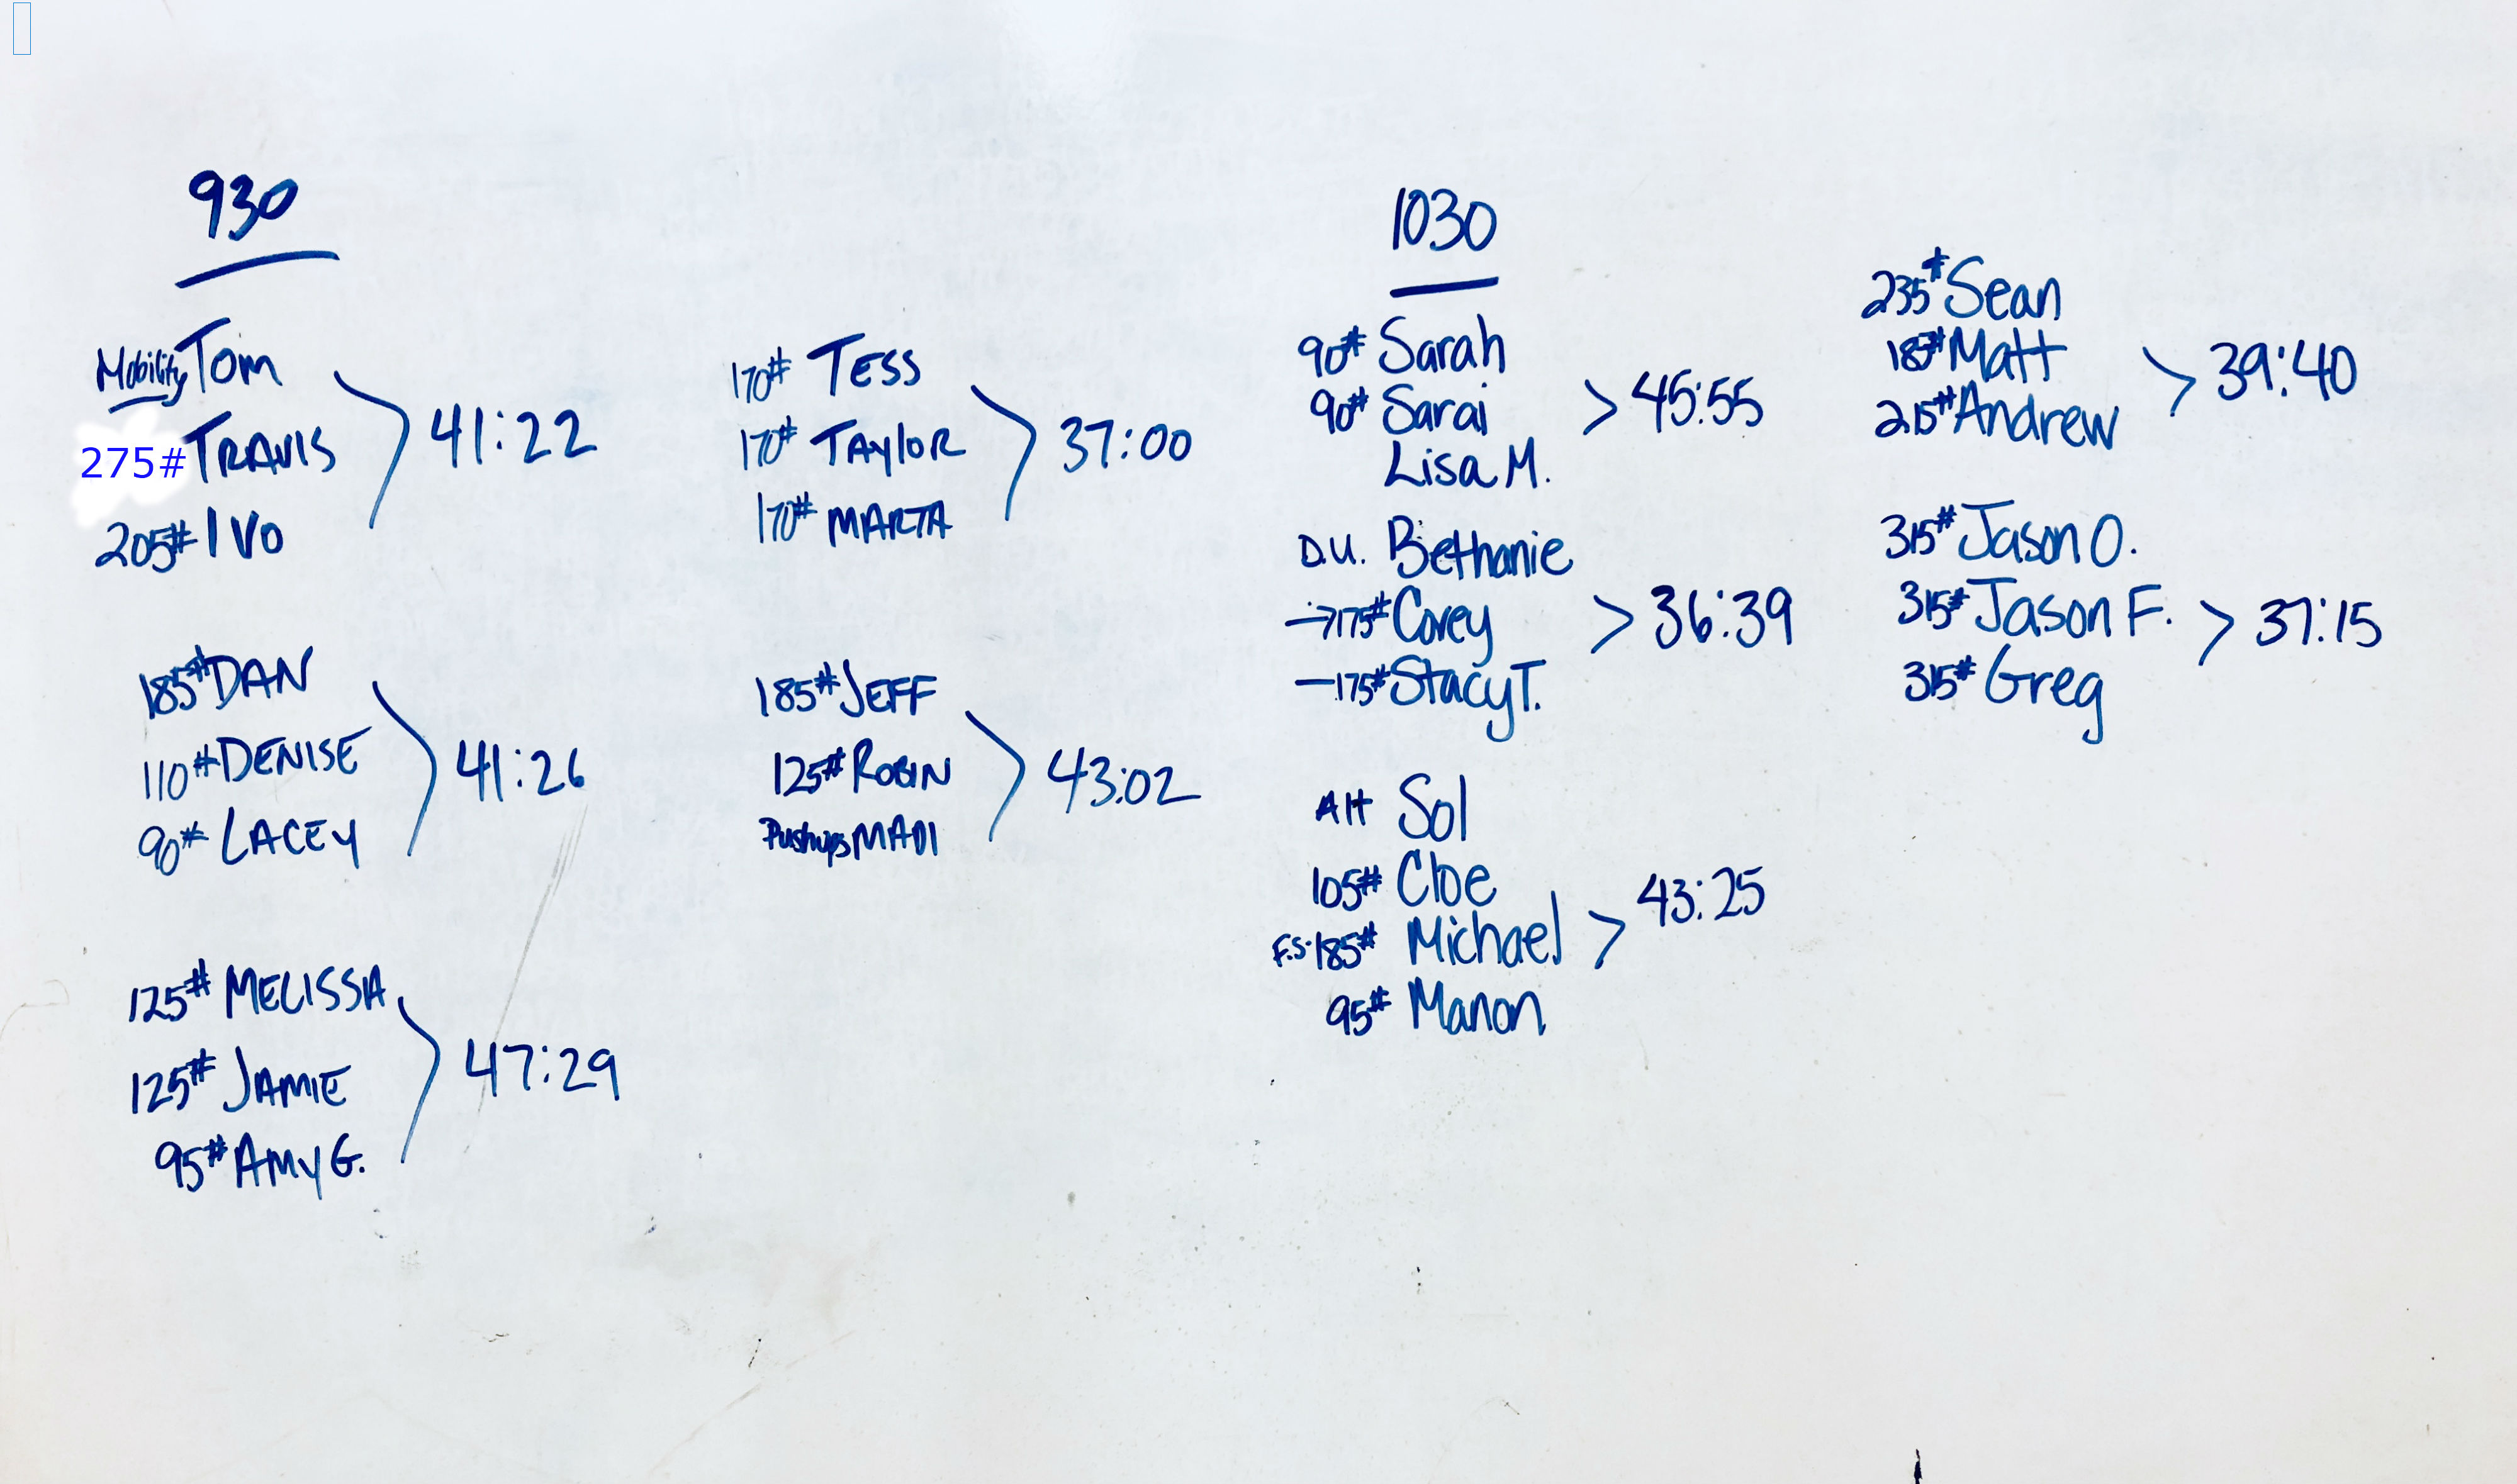 930
Mobility Tom
275# TRAVIS
205# IVO
41:22
185# DAN
110# DENISE
90# LACEY
41:26
125# MELISSA
125# JAMIE
95# AMY G.
47:29
170# TESS
170# TAYLOR
170# MARTA
37:00
185# JEFF
125# ROBIN
Pushups MADI
43:02
1030
90# Sarah
90# Sarai
Lisa M.
45:55
D.U. Bethanie
→175# Corey
—175# Stacy T.
36:39
Alt Sol
105# Cloe
F.S. 185# Michael
95# Manon
43:25
235# Sean
185# Matt
215# Andrew
39:40
315# Jason O.
315# Jason F.
315# Greg
37:15